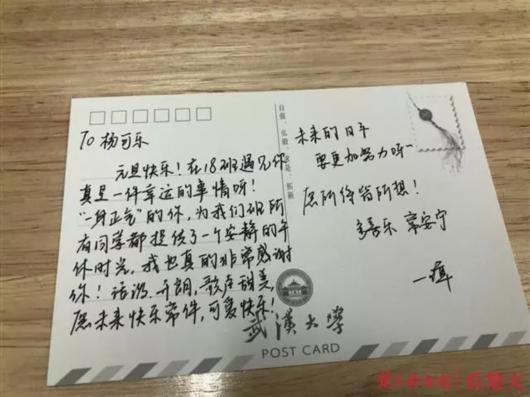 To 杨可乐
元旦快乐！在18班遇见你
真是一件幸运的事情呀！
"一身正气"的你，为我们班所
有同学都提供了一个安静的午
休时光，我也真的非常感谢
你！活泼、开朗、歌声甜美，
愿未来快乐常伴，可爱快乐！
自强、弘毅、求是、拓新
未来的日子
要更加努力呀~
愿所得皆所想！
多喜乐 常安宁
武漢大學
POST CARD